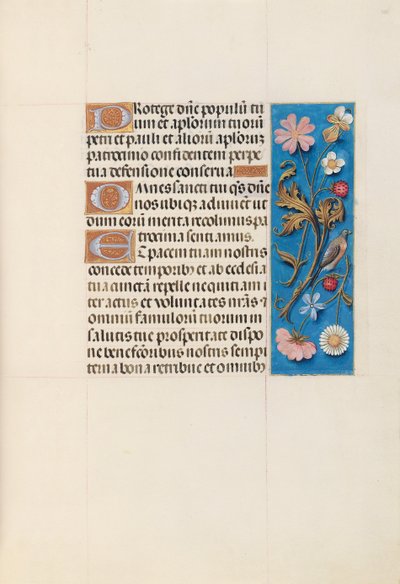 Protege dñe populũ tu
um et aplõrum tuorũ
petri et pauli et aliorũ aplorz
patrocinio confidentem perpe
tua defensione conserva
Omnes sancti tui q̃s dñe
nos ubiqz adiuvent ut
dum eorũ merita recolimus pa
trocinia sentiamus.
Et pacem tuam nostris
concede temporibz et ab ecclesia
tua cunctã repelle nequitiam i
ter actus et voluntates nr̃as &
omniũ famulorũ tuorum in
salutis tue prosperitate dispo
ne benefcõribus nostris sempi
terna bona retribue et omnibz